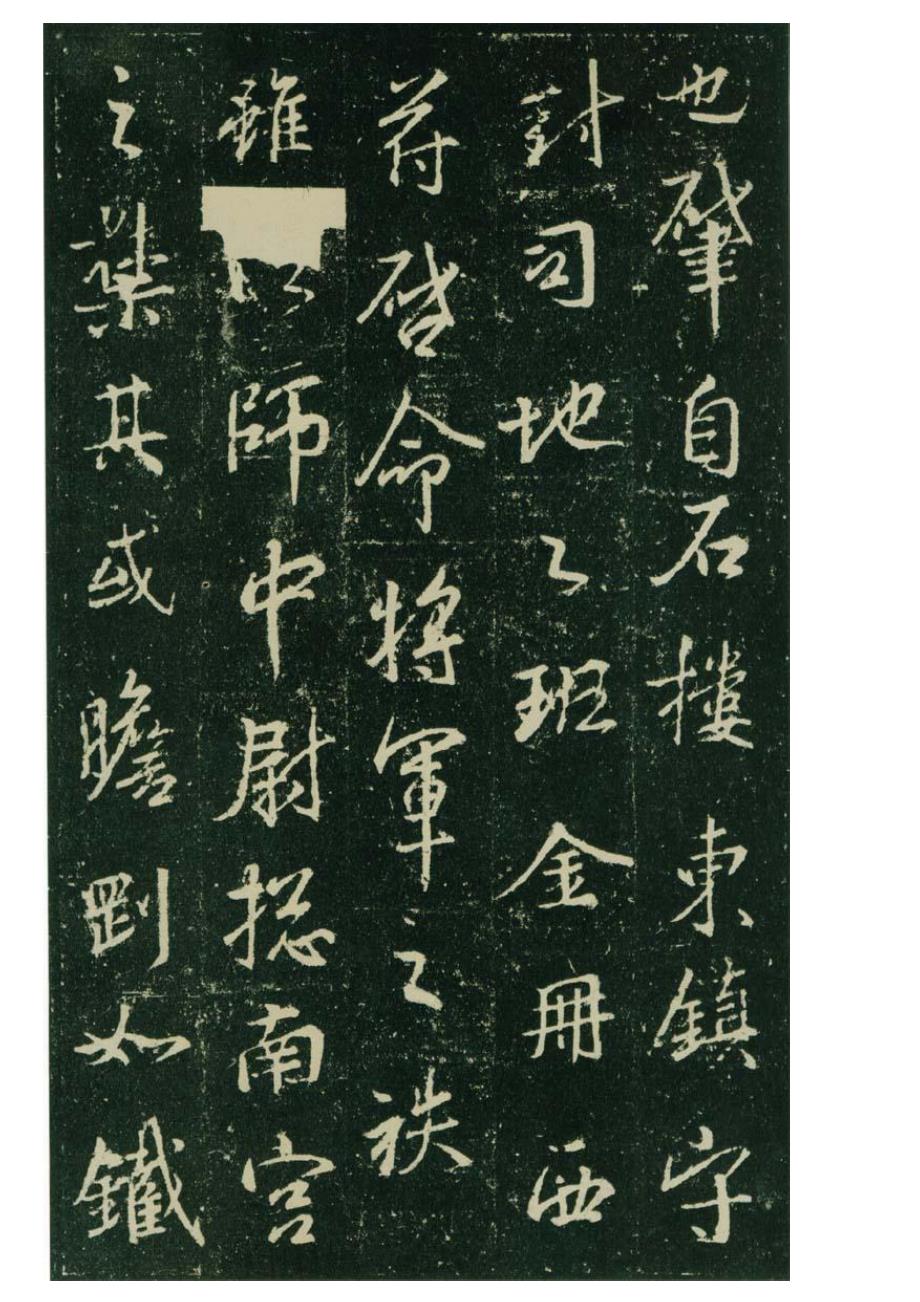 也肇自石樓東鎮守
封司地之班金冊西
苻啓命將軍之袟
雖以師中尉揔南宮
之業其或瞻剛如鐵